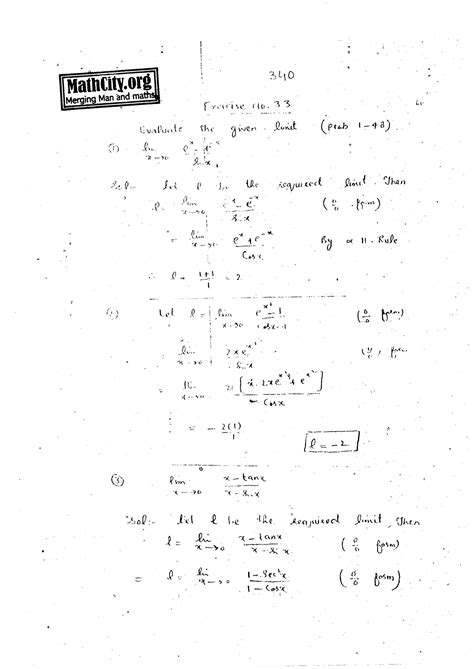 MathCity.org
Merging Man and maths
340
Exercise No. 33
Evaluate the given limit (prob 1-42)
(1) lim x→0 (e^x - e^-x) / Sin x
Sol:- Let l be the required limit. Then
l = lim x→0 (e^x - e^-x) / Sin x (0/0 form)
= lim x→0 (e^x + e^-x) / Cos x By Rule
∴ l = (1+1)/1 = 2
Let l = lim x→0 (e^x² - 1) / (cos x - 1) (0/0 form)
= lim x→0 2xe^x² / - Sin x (0/0 form
= lim x→0 2[x. 2xe^x² + e^x²] / - Cos x
= - 2(1)/1
l = -2
(3) lim x→0 (x - tanx) / (x - Sin x)
Sol:- Let l be the required limit, Then
l = lim x→0 (x - tanx) / (x - Sin x) (0/0 form)
= l = lim x→0 (1 - Sec²x) / (1 - Cosx) (0/0 form)